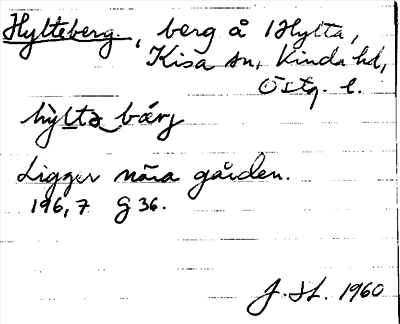 Hylteberg, berg å Hylta,
Kisa sn, Kinda hd,
Östg. l.
hỳltə bǽrj
Ligger nära gården.
196,7 G 36.
J. H. 1960